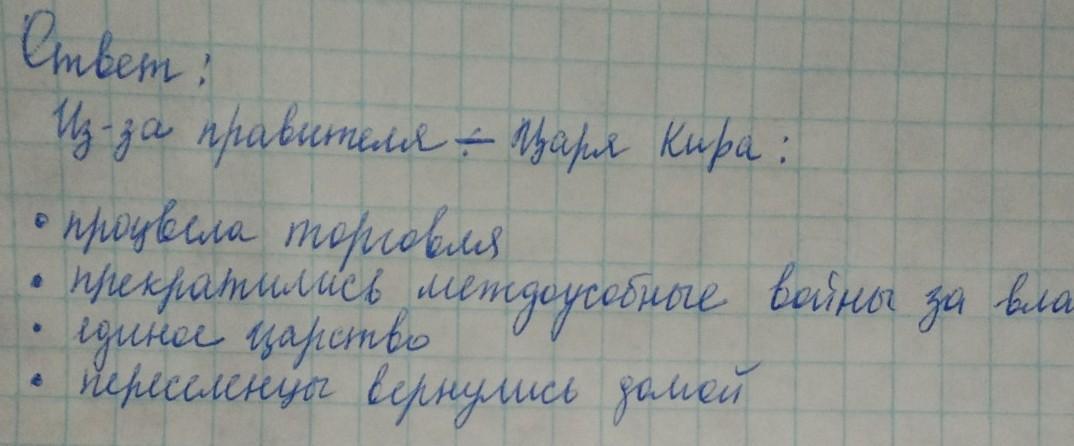 Ответ:
Из-за правителя - Царя Кира:
• процвела торговля
• прекратились междоусобные войны за вла
• единое царство
• переселенцы вернулись домой